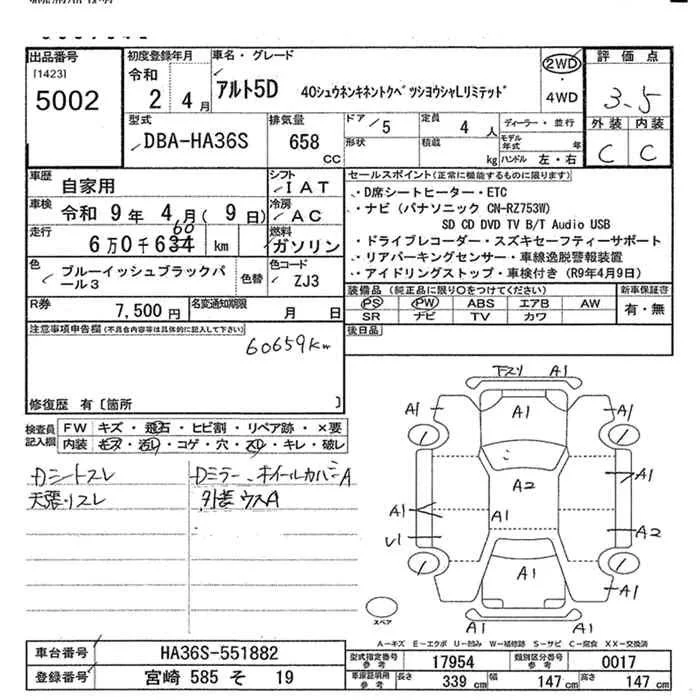 出品番号
[1423]
5002
初度登録年月
令和
2 4 月
車名・グレード
アルト5D 40シュウネンキネントクベツシヨウシャLリミテッド
2WD
4WD
評価点
3.5
外装 内装
C C
型式
DBA-HA36S
排気量
658
CC
ドア / 5
形状
定員
4 人
積載
kg
ディーラー・並行
モデル年式 年
ハンドル 左・右
車歴
自家用
シフト
IAT
車検
令和 9年 4月( 9日)
冷房
AC
走行
6万0千634 km
60
燃料
ガソリン
色
ブルーイッシュブラックパール3
色替
色コード
ZJ3
R券
7,500円
名変通知期限
月 日
セールスポイント(正常に機能するものに限ります)
・D席シートヒーター・ETC
・ナビ(パナソニック CN-RZ753W)
SD CD DVD TV B/T Audio USB
・ドライブレコーダー・スズキセーフティーサポート
・リアパーキングセンサー・車線逸脱警報装置
・アイドリングストップ・車検付き(R9年4月9日)
装備品(純正品に限り○をつけてください)
PS PW ABS エアB AW
SR ナビ TV カワ
新車保証書
有・無
後日品
注意事項申告欄(不具合内容等は具体的に記入して下さい)
60659km
修復歴 有〔箇所 〕
検査員記入欄
FW キズ・飛石・ヒビ割・リペア跡・×要
内装 モス・汚レ・コゲ・穴・スレ・キレ・破レ
Dシートスレ
天張リスレ
Dミラー、ホイールカバーA
外装ウスA
下スリ A1
A1 A1 A1
A1
A2
A1 A1
A2
U1
A1
A1
A1 A1
スペア
A―キズ E―エクボ U―凹み W―補修跡 S―サビ C―腐食 XX―交換済
車台番号
HA36S-551882
登録番号
宮崎 585 そ 19
型式指定番号
参考
17954
類別区分番号
参考
0017
車庫証明用
参考
長さ
339 cm
幅
147 cm
高さ
147 cm